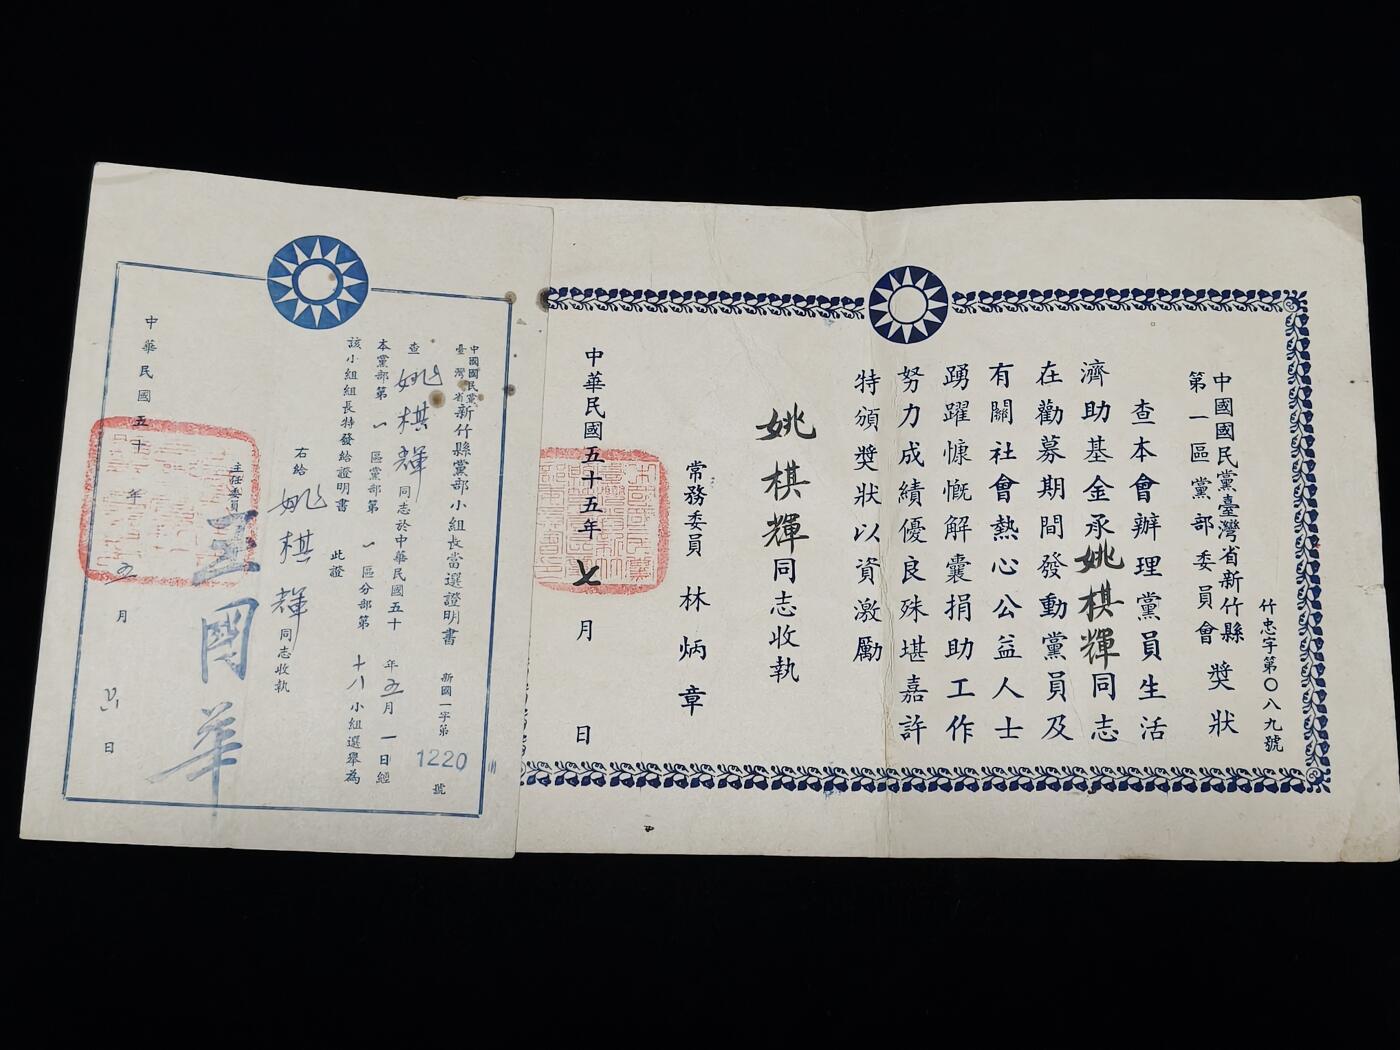 竹忠字第〇八九號
中國國民黨臺灣省新竹縣
第一區黨部委員會
獎狀
查本會辦理黨員生活
濟助基金承姚棋輝同志
在勸募期間發動黨員及
有關社會熱心公益人士
踴躍慷慨解囊捐助工作
努力成績優良殊堪嘉許
特頒獎狀以資激勵
姚棋輝同志收執
常務委員 林炳章
中華民國五十五年七月 日
中國國民黨
臺灣省
新竹縣黨部小組長當選證明書
新國一字第1220號
查姚棋輝同志於中華民國五十 年五月一日經
本黨部第一區黨部第一區分部第十八小組選舉為
該小組組長特發給證明書
此證
右給姚棋輝同志收執
主任委員 王國華
中華民國五十 年五月 日